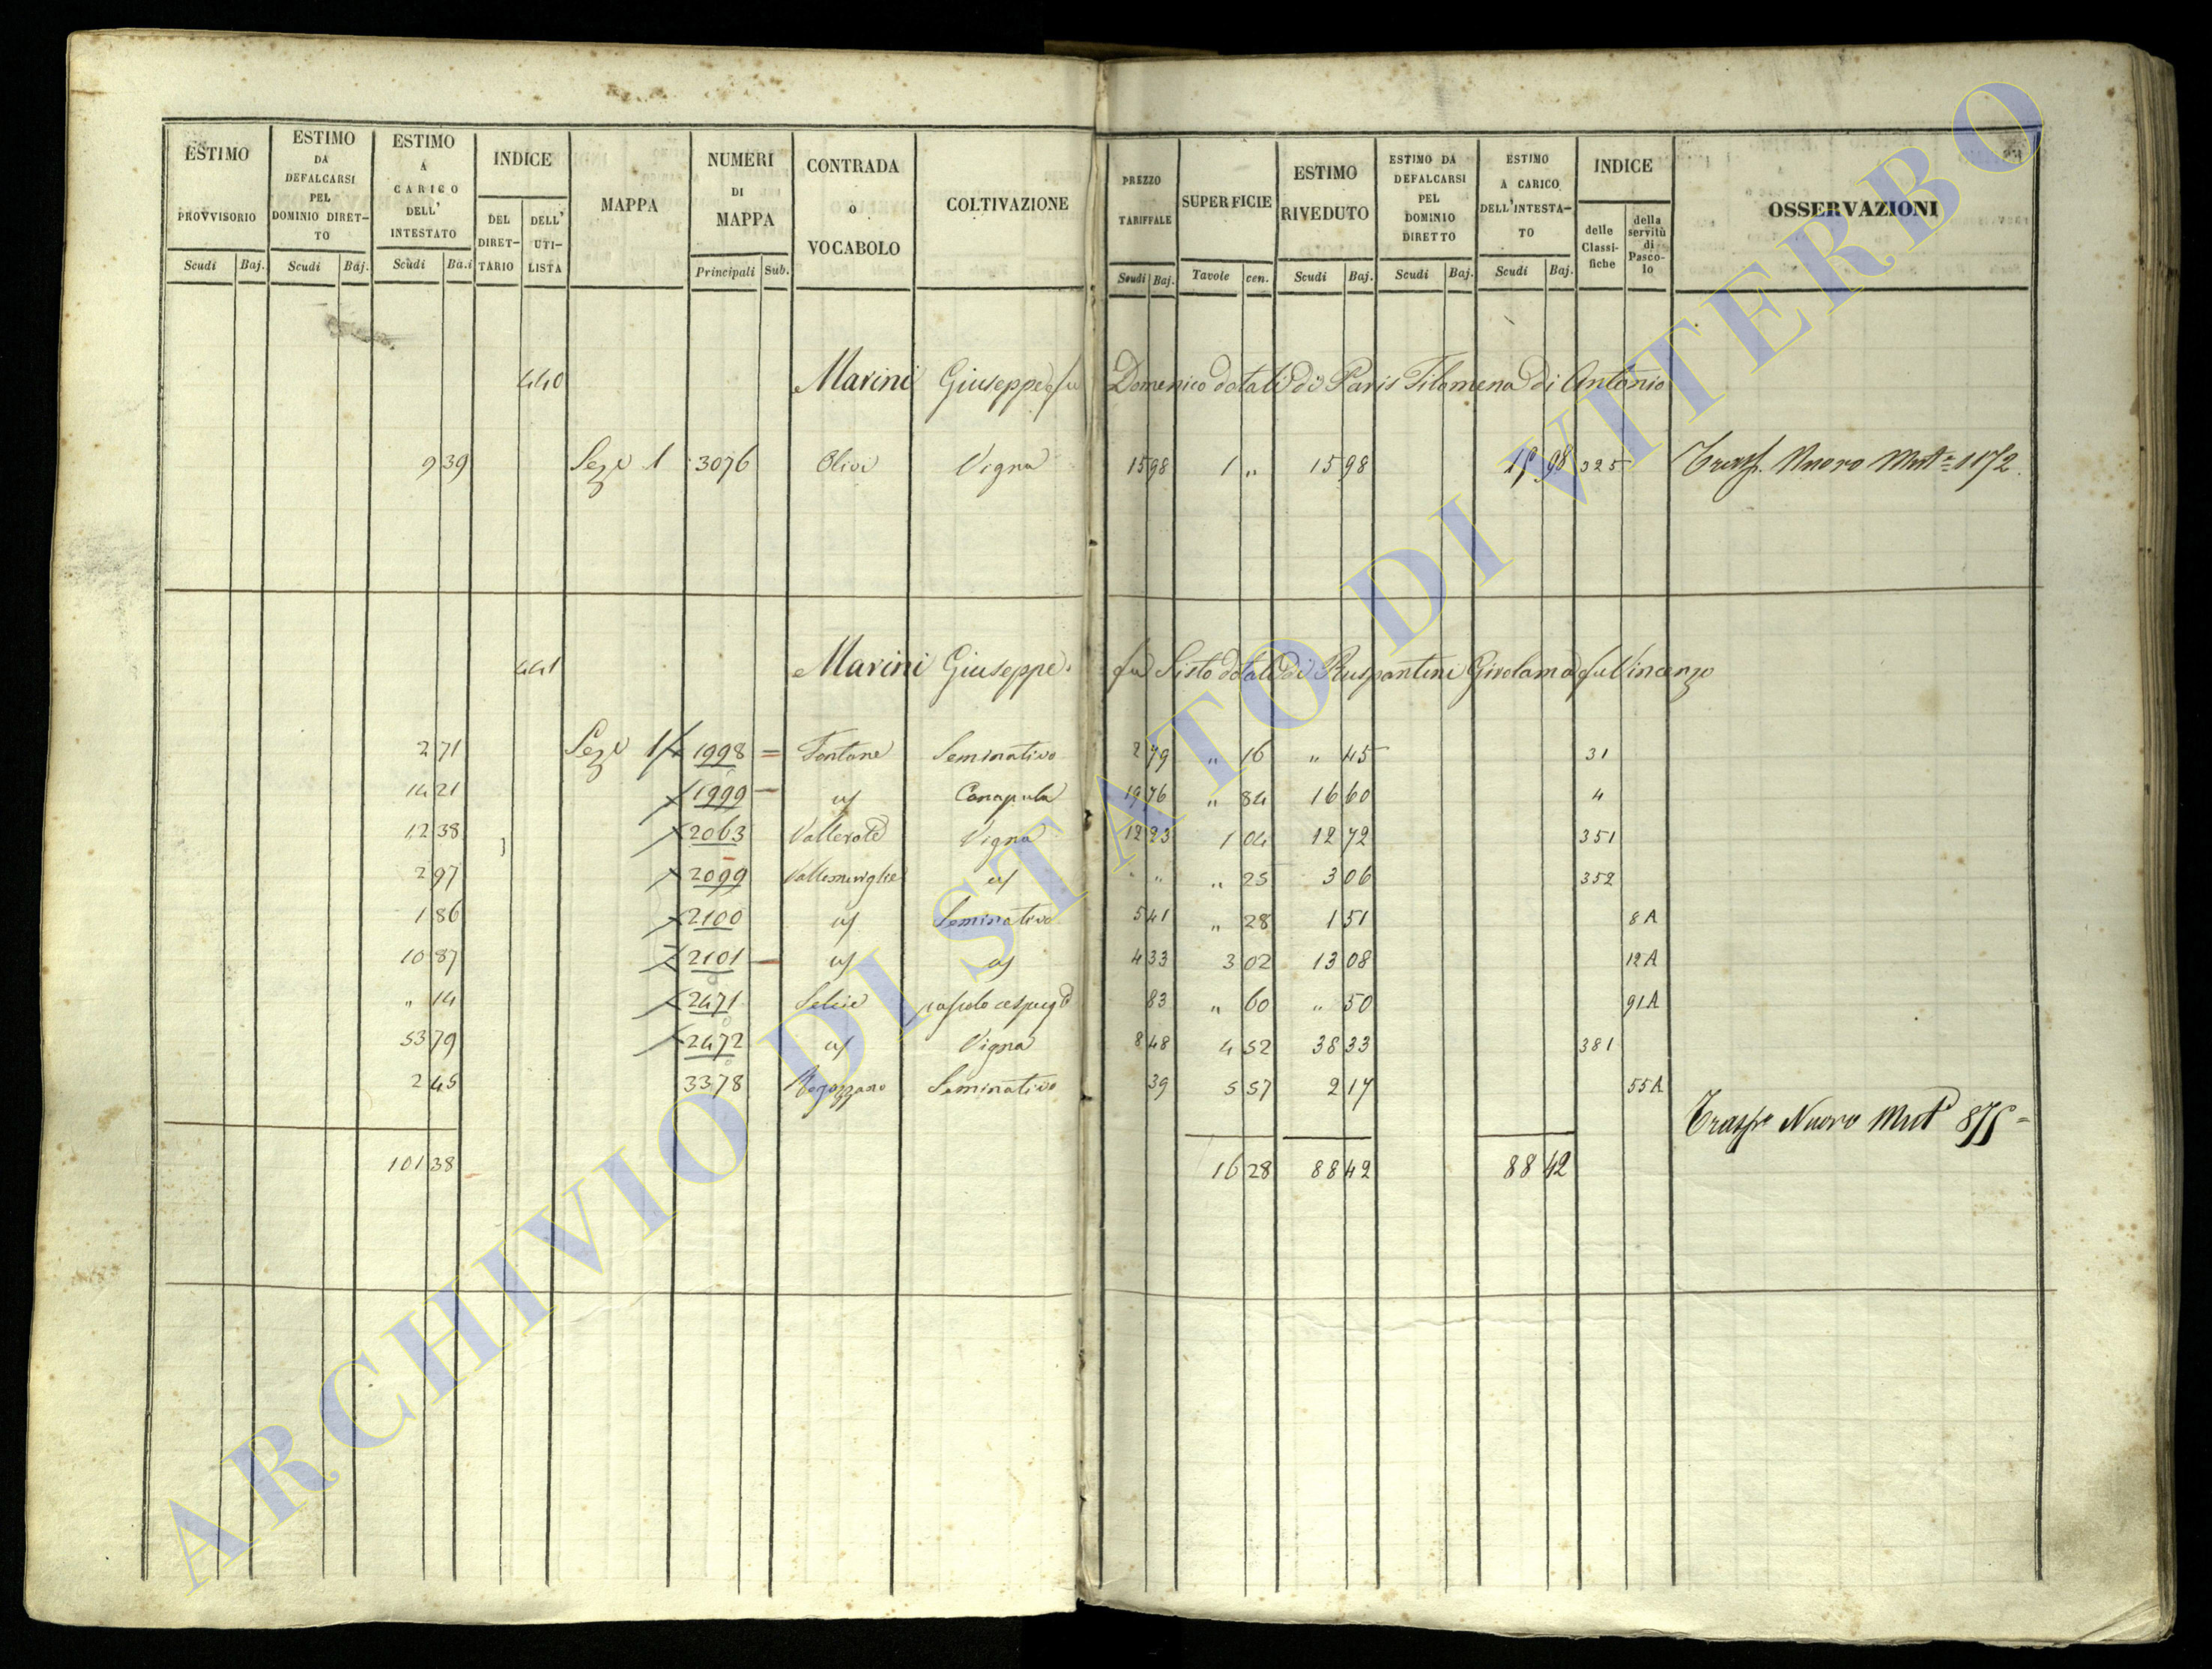 ESTIMO PROVVISORIO Scudi Baj.
ESTIMO DA DEFALCARSI PEL DOMINIO DIRETTO Scudi Baj.
ESTIMO A CARICO DELL' INTESTATO Scudi Baj.
INDICE DEL DIRETTARIO DELL' UTILISTA
MAPPA
NUMERI DI MAPPA Principali Sub.
CONTRADA O VOCABOLO
COLTIVAZIONE
PREZZO TARIFFALE Scudi Baj.
SUPERFICIE Tavole cen.
ESTIMO RIVEDUTO Scudi Baj.
ESTIMO DA DEFALCARSI PEL DOMINIO DIRETTO Scudi Baj.
ESTIMO A CARICO DELL'INTESTATO Scudi Baj.
INDICE delle Classifiche della servitù di Pascolo
OSSERVAZIONI
440 Marini Giuseppe fu Domenico dotali di Paris Filomena di Antonio
9 39 Seze 1 3076 Olivi Vigna 15 98 1 „ 15 98 15 98 325 Trasf. Nuovo Mut.e 1172
441 Marini Giuseppe fu Sisto dotali di Ruspantini Girolama fu Vincenzo
2 71 Seze 1 1998 = Fontane Seminativo 2 79 „ 16 „ 45 31
14 21 1999 — Canapula 19 76 „ 84 16 60 4
12 38 2063 Vallerate Vigna 12 23 1 04 12 72 351
2 97 2099 „ „ „ 25 3 06 352
1 86 2100 Seminativo 5 41 „ 28 1 51 8A
10 87 2101 — 4 33 3 02 13 08 12A
„ 14 2471 Selcie pascolo cespugo 83 „ 60 „ 50 91A
53 79 2472 Vigna 8 48 4 52 38 33 381
2 45 3378 Seminativo 39 5 57 2 17 55A
Trasf.e Nuovo Mut.e 875
101 38 16 28 88 42 88 42
ARCHIVIO DI STATO DI VITERBO